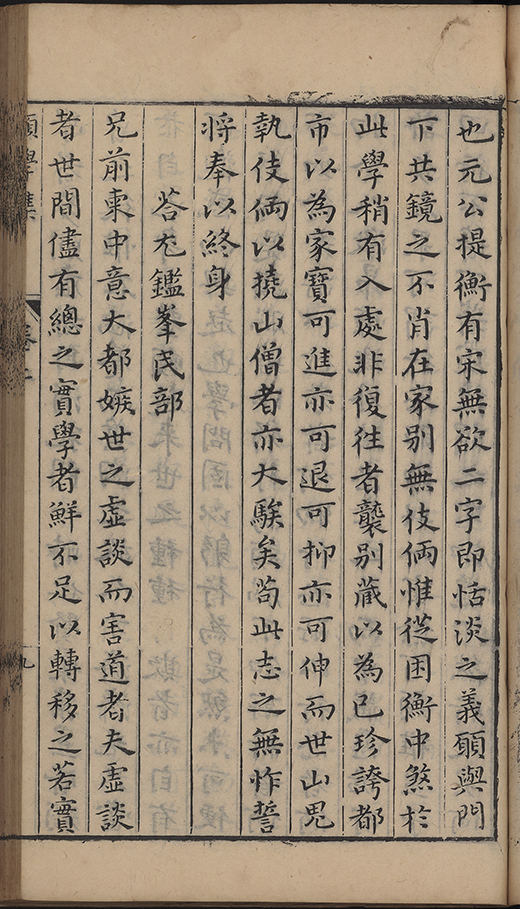 也元公提衡有宋無欲二字即恬淡之義願與門
下共鏡之不肖在家别無伎倆惟從困衡中煞於
此學稍有入處非復往者襲别藏以為已珍誇都
市以為家寶可進亦可退可抑亦可伸而世山鬼
執伎倆以撓山僧者亦大騃矣苟此志之無怍誓
將奉以終身
荅尤鑑峯民部
兄前柬中意大都嫉世之虛談而害道者夫虛談
者世間儘有總之實學者鮮不足以轉移之若實
願學集
卷二
九